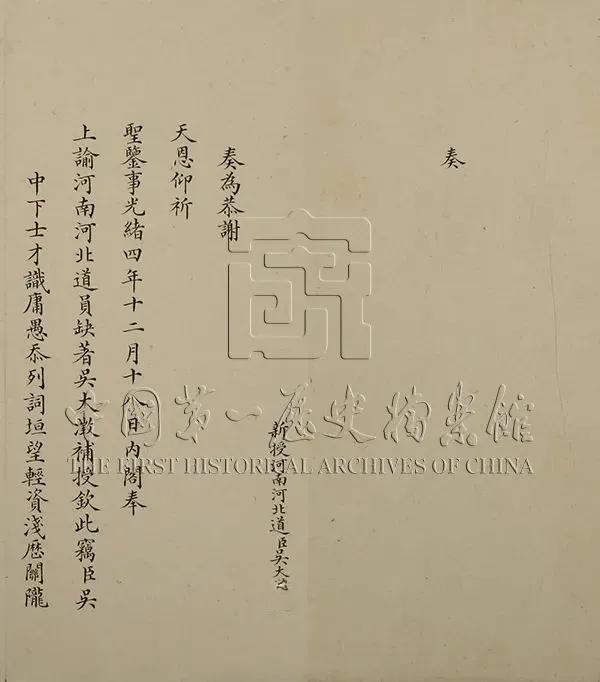 奏
新授河南河北道臣吳大澂
奏為恭謝
天恩仰祈
聖鑒事光緒四年十二月十八日內閣奉
上諭河南河北道員缺著吳大澂補授欽此竊臣吳
中下士才識庸愚忝列詞垣望輕資淺歷關隴
中國第一歷史檔案館
THE FIRST HISTORICAL ARCHIVES OF CHINA